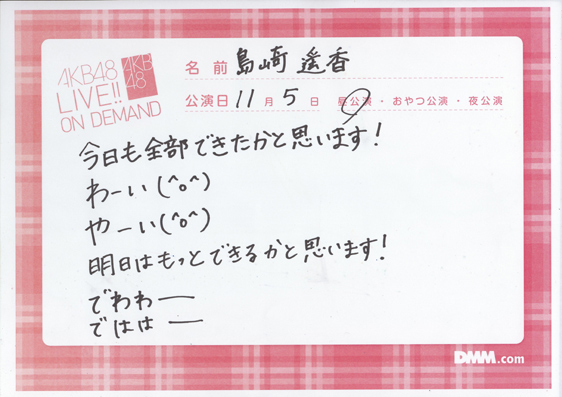 AKB48
LIVE!!
ON DEMAND
AKB
48
名前 島崎 遙香
公演日 11月5日 昼公演・おやつ公演・夜公演
今日も全部できたかと思います!
わーい(^o^)
やーい(^o^)
明日はもっとできるかと思います!
でわわー
でははー
DMM.com